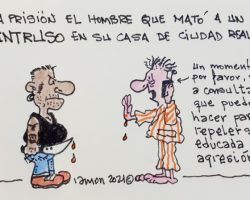 A PRISIÓN EL HOMBRE QUE MATÓ A UN
INTRUSO EN SU CASA DE CIUDAD REAL
un momento
por favor,
a consulta
que pue
hacer par
repeler
educada
agresión
ramón 2021©